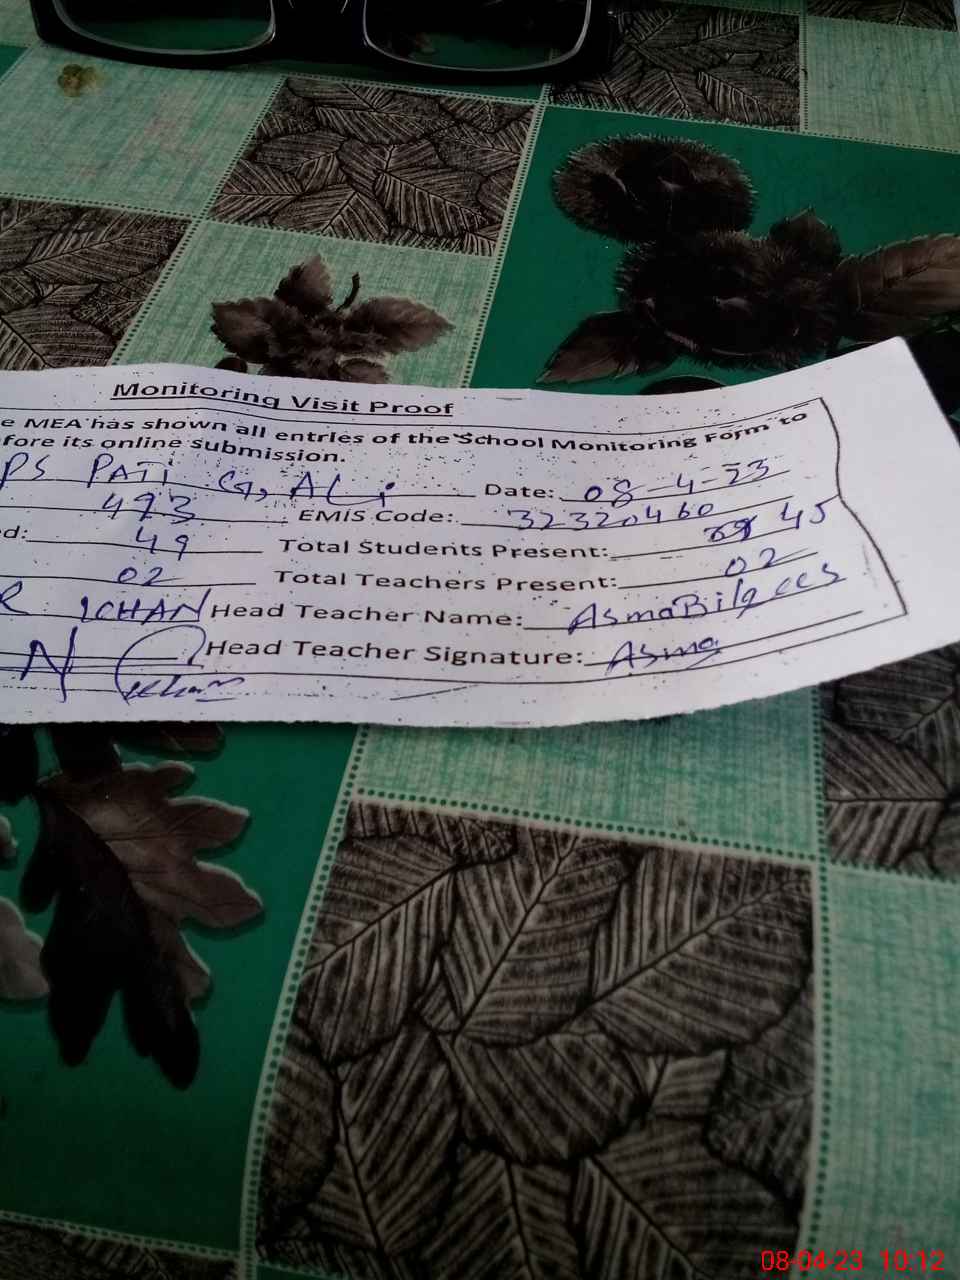 Monitoring Visit Proof
e MEA has shown all entries of the School Monitoring Form to
fore its online submission.
PS PATI G, ALi Date: 08-4-23
493 EMIS Code: 32320460
ed: 49 Total Students Present: 45
02 Total Teachers Present: 02
R KHAN Head Teacher Name: Asma Bilqees
Head Teacher Signature: Asma
08-04-23 10:12